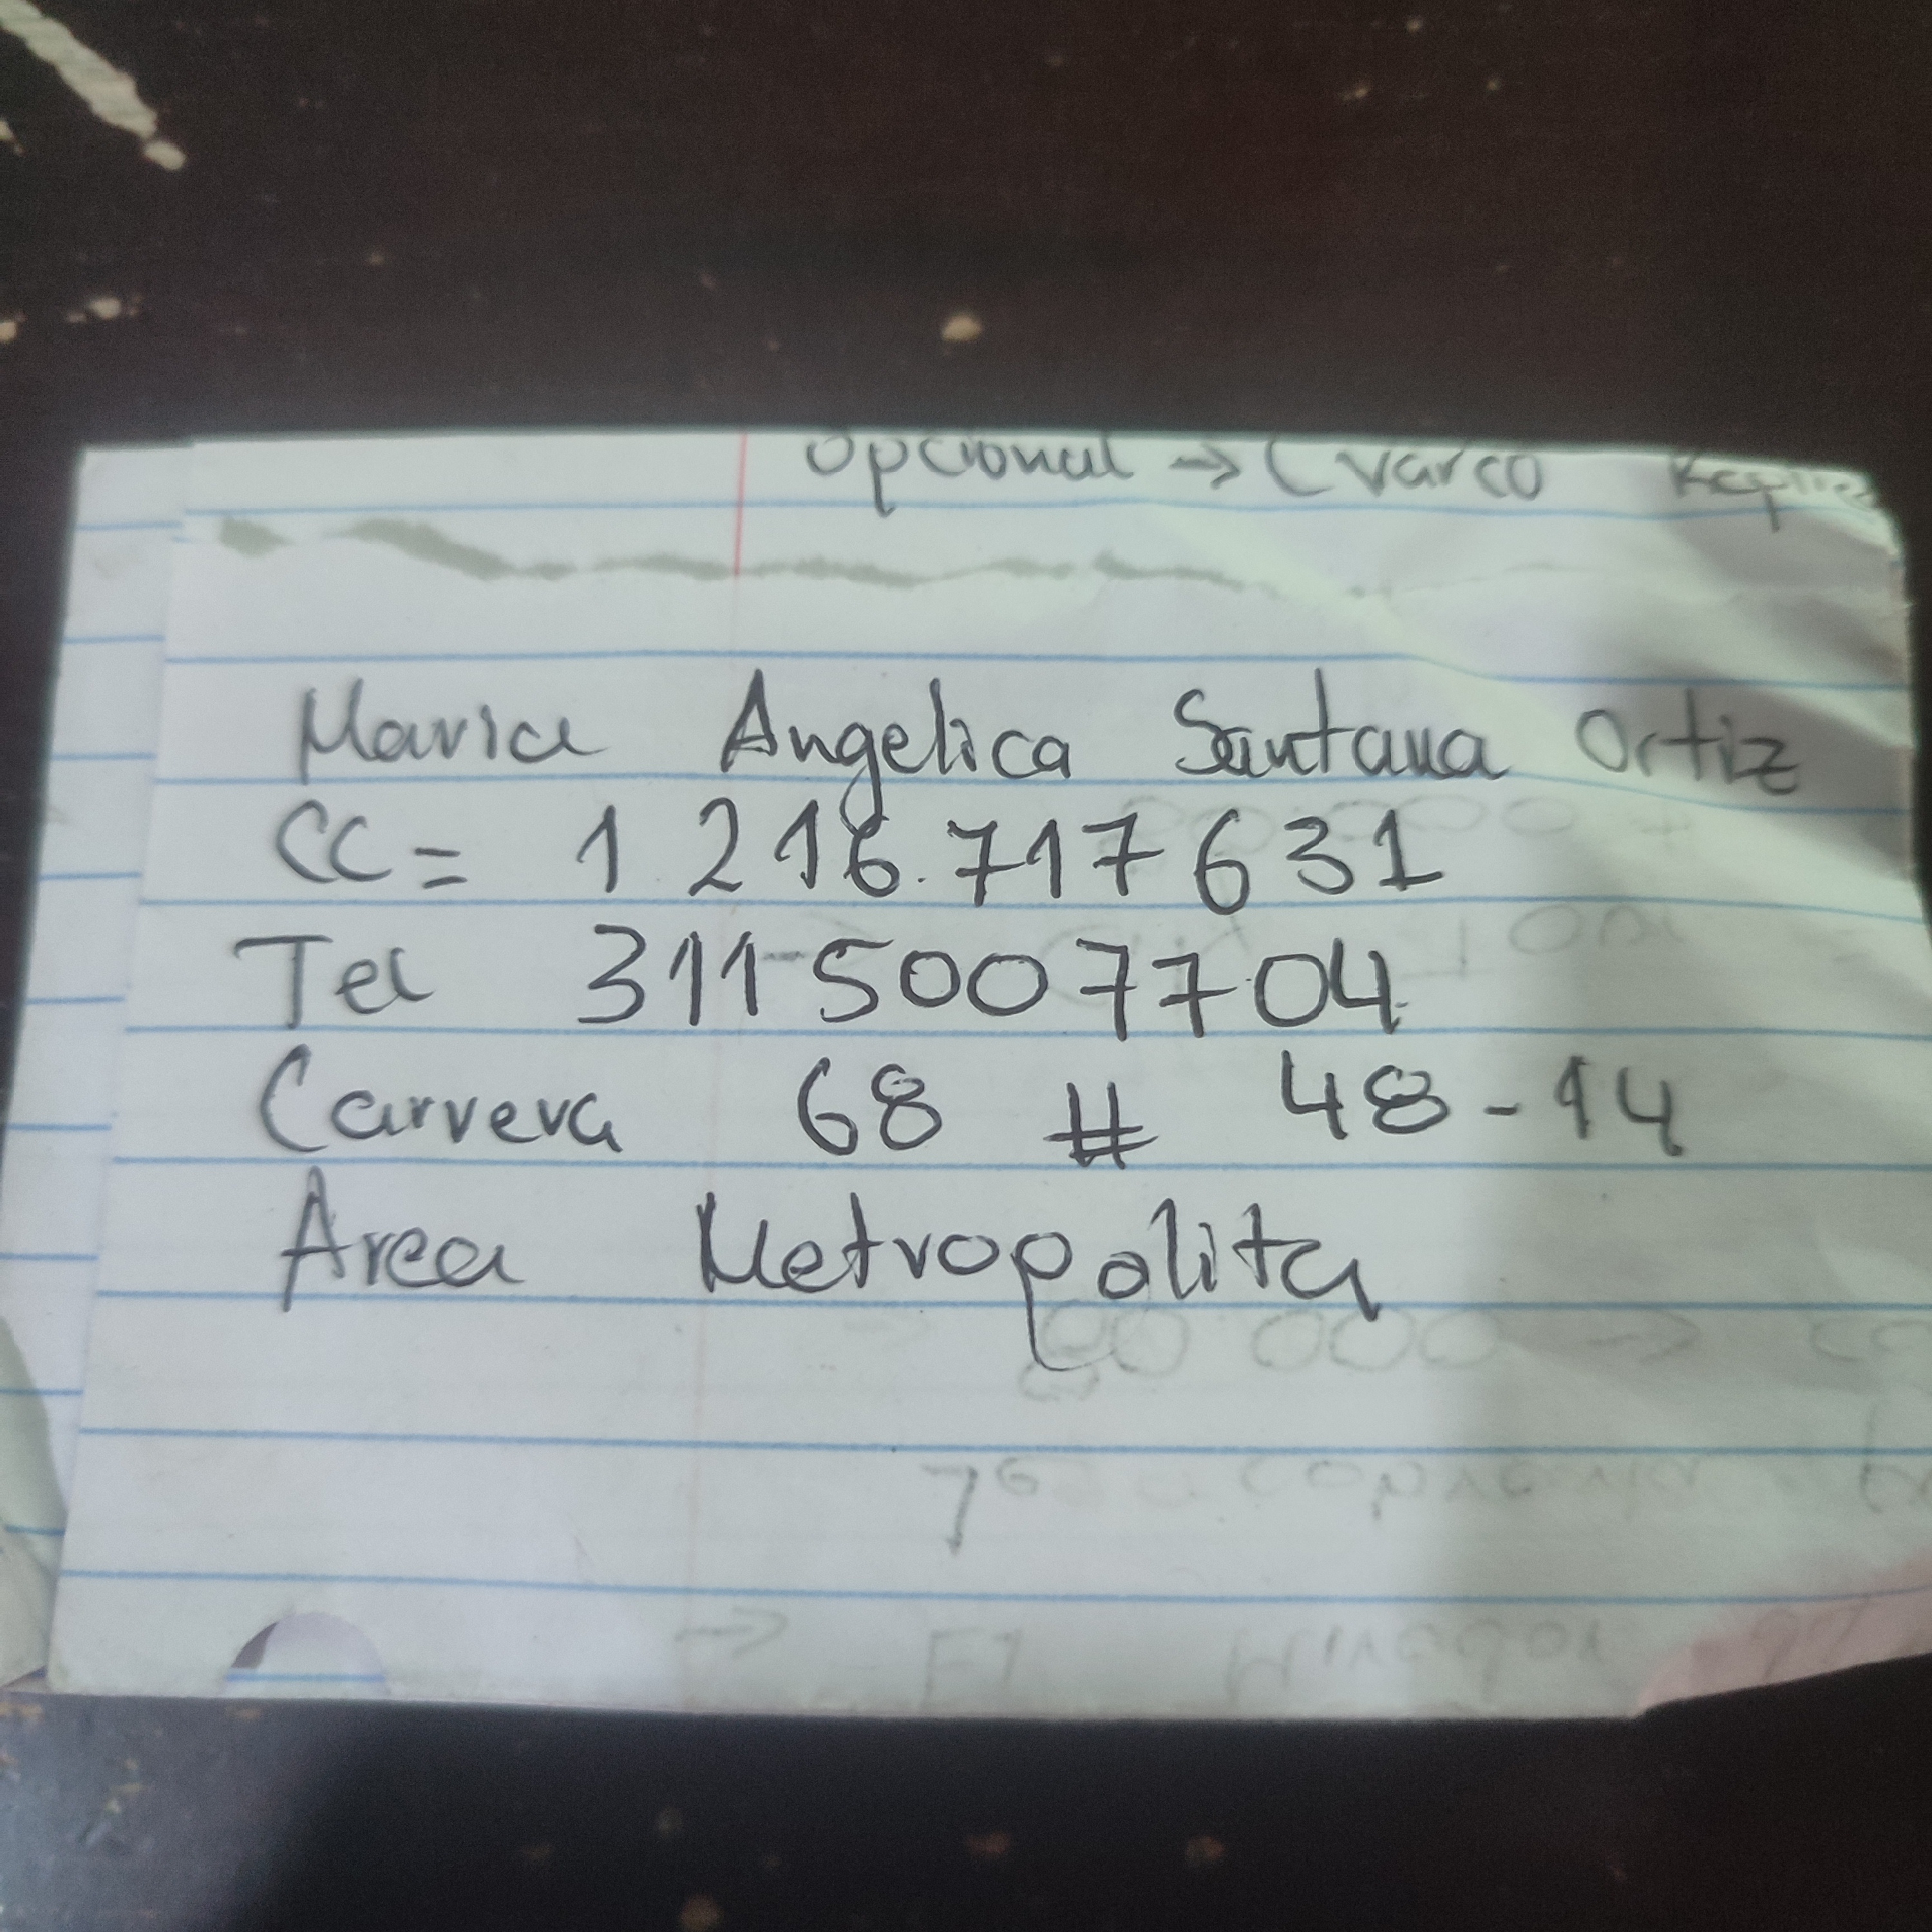 Opcional → (varco
Maria Angelica Santana Ortiz
CC = 1 216.717 631
Tel 311-5007704
Carrera 68 # 48-14
Area Metropolita